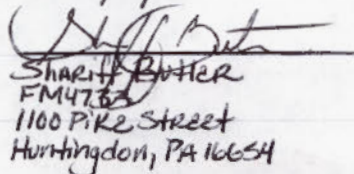 Shariff Butler
FM4733
1100 Pike Street
Huntingdon, PA 16654